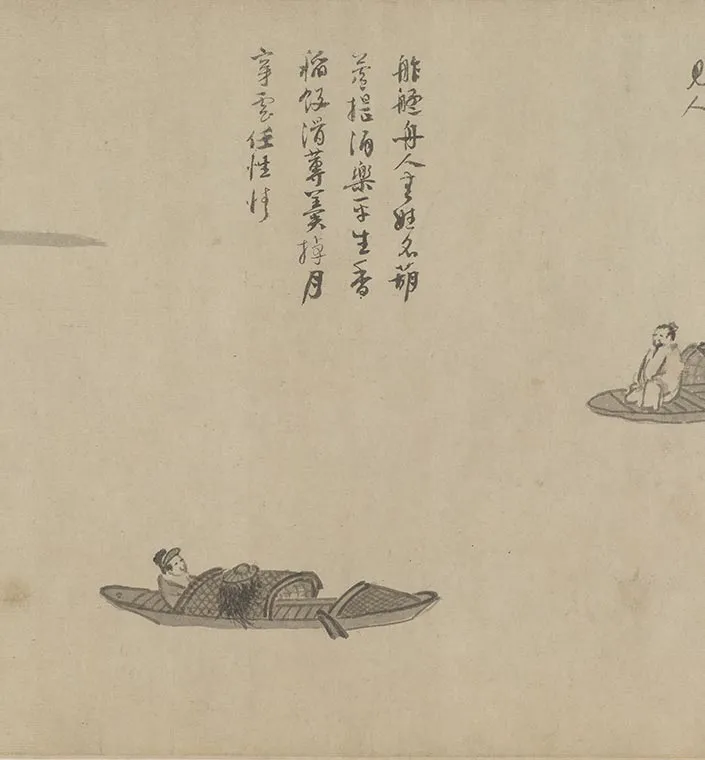 見人
舴艋舟人無姓名葫
蘆提酒樂平生香
稻飯滑蓴羹掉月
穿雲任性情